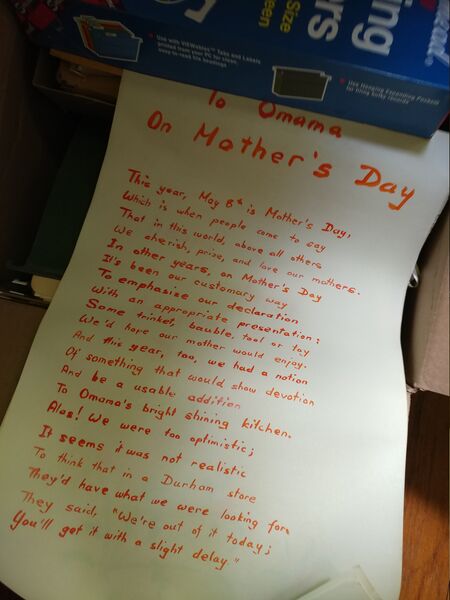 Size
een
ing
rs
al.
Use with VIEWables™ Tabs and Labels
printed from your PC for clean,
easy-to-read file headings
Use Hanging Expanding Pockets
for filing bulky records
To Omama
On Mother's Day
This year, May 8th is Mother's Day,
Which is when people come to say
That in this world, above all others
We cherish, prize, and love our mothers.
In other years, on Mother's Day
It's been our customary way
To emphasise our declaration
With an appropriate presentation:
Some trinket, bauble, tool or toy
We'd hope our mother would enjoy.
And this year, too, we had a notion
Of something that would show devotion
And be a usable addition
To Omama's bright shining kitchen.
Alas! We were too optimistic;
It seems it was not realistic
To think that in a Durham store
They'd have what we were looking for.
They said, "We're out of it today;
You'll get it with a slight delay."